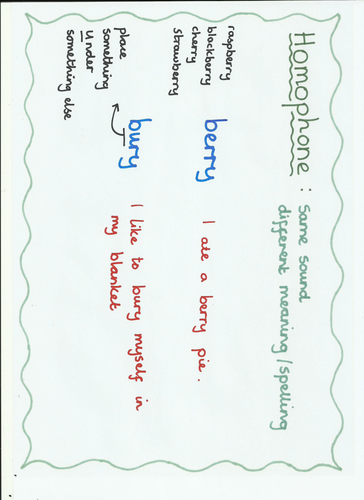 Homophone : Same sound
different meaning/spelling
raspberry
blackberry
cherry
strawberry
berry
I ate a berry pie.
bury
I like to bury myself in
my blanket
place
something
under
something else